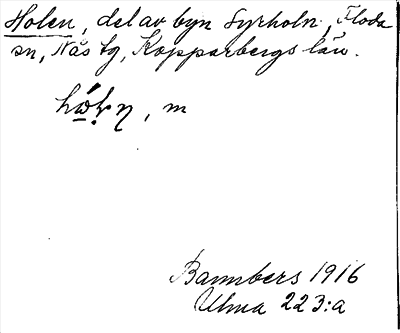 Holen, del av byn Syrholn, Floda
sn, Nås tg, Kopparbergs län.
, m
Bannbers 1916
Ulma 223:a